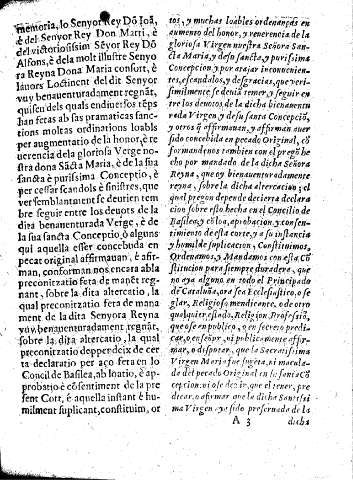 memoria, lo Senyor Rey Dõ Joã,
è del Senyor Rey Don Marti, è
del victoriosissim Sẽyor Rey Dõ
Alfons, è dela molt illustre Senyo
ra Reyna Dona Maria consort, è
Lonctinent General del dit Senyor
vuy benauenturadament regnãt,
quiscu dels quals en diuersos tẽps
han fetas ab sas pramaticas sanc-
tions moltas ordinations loables
per augmentatio de la honor, è re
uerencia de la gloriosa Verge nos-
tra dona Sãcta Maria, è de la sua
sancta è purissima Conceptio, è
per cessar scandols è sinistres, que
versemblantment se deurien tem
bre seguir entre los deuots de la
dita benauenturada Verge, è de
la sua sancta Conceptio, ò alguns
qui aquella esser concebuda en
pecat original affirmauan, è afir-
man, conforman nos encara abla
preconitzatio feta de manet reg-
nant, sobre la dita altercatio, la
qual preconitzatio feta de mana-
ment de la dita Senyora Reyna
vuy benauenturadament regnãt,
sobre la dita altercatio, la qual
preconitzatio depende ix de cer
ta declaratio per aço feta en lo
Concil de Basilea, ab loatio, è ap-
probatio è cõsentiment de la pre
sent Cort, è aquella instant è hu-
milment suplicant, constituim, or
tos, y muchas loables ordenanças en
aumento del honor, y reuerencia de la
gloriosa Virgen nuestra Señora San-
cta Maria, y de su sancta, y purissima
Concepcion y por atajar inconuenien-
tes, escandalos, y desgracias, que veri-
similmente se deuiã temer, y seguir en-
tre los deuotos de la dicha bienauentu
rada Virgen, y de su santa Concepciõ,
y otros q̃ affirmauan, y affirman auer
sido concebida en pecado Original, cõ
formandonos tambien con el pregõ he
cho por mandado de la dicha Señora
Reyna, que oy bienauenturadamente
reyna, sobre la dicha altercacion; el
qual pregon depende de cierta declara
cion sobre esto hecha en el Concilio de
Basilea, y cõ loa, aprobacion, y consen-
timiento de esta corte, y a su instancia
y humilde suplicacion, Constituimos,
Ordenamos, y Mandamos con esta Cõ
stitucion para siempre duradera, que
no aya alguno en todo el Principado
de Cataluña, ora sea Ecclesiastico, o se
glar, Religioso mendicante, o de otro
qualquier estado, Religion, Professiõ,
que ose en publico, o en secreto predi-
car, o enseñar, ni publicamente affir-
mar, o disputar, que la Sacratissima
Virgen Maria fue sugeta, ni macula-
da del pecado Original en su santa Cõ
cepcion: ni ose dezir, que el tener, pre
dicar, o afirmar que la dicha Santissi
ma Virgen ya sido preseruada de la
A 3 dicha